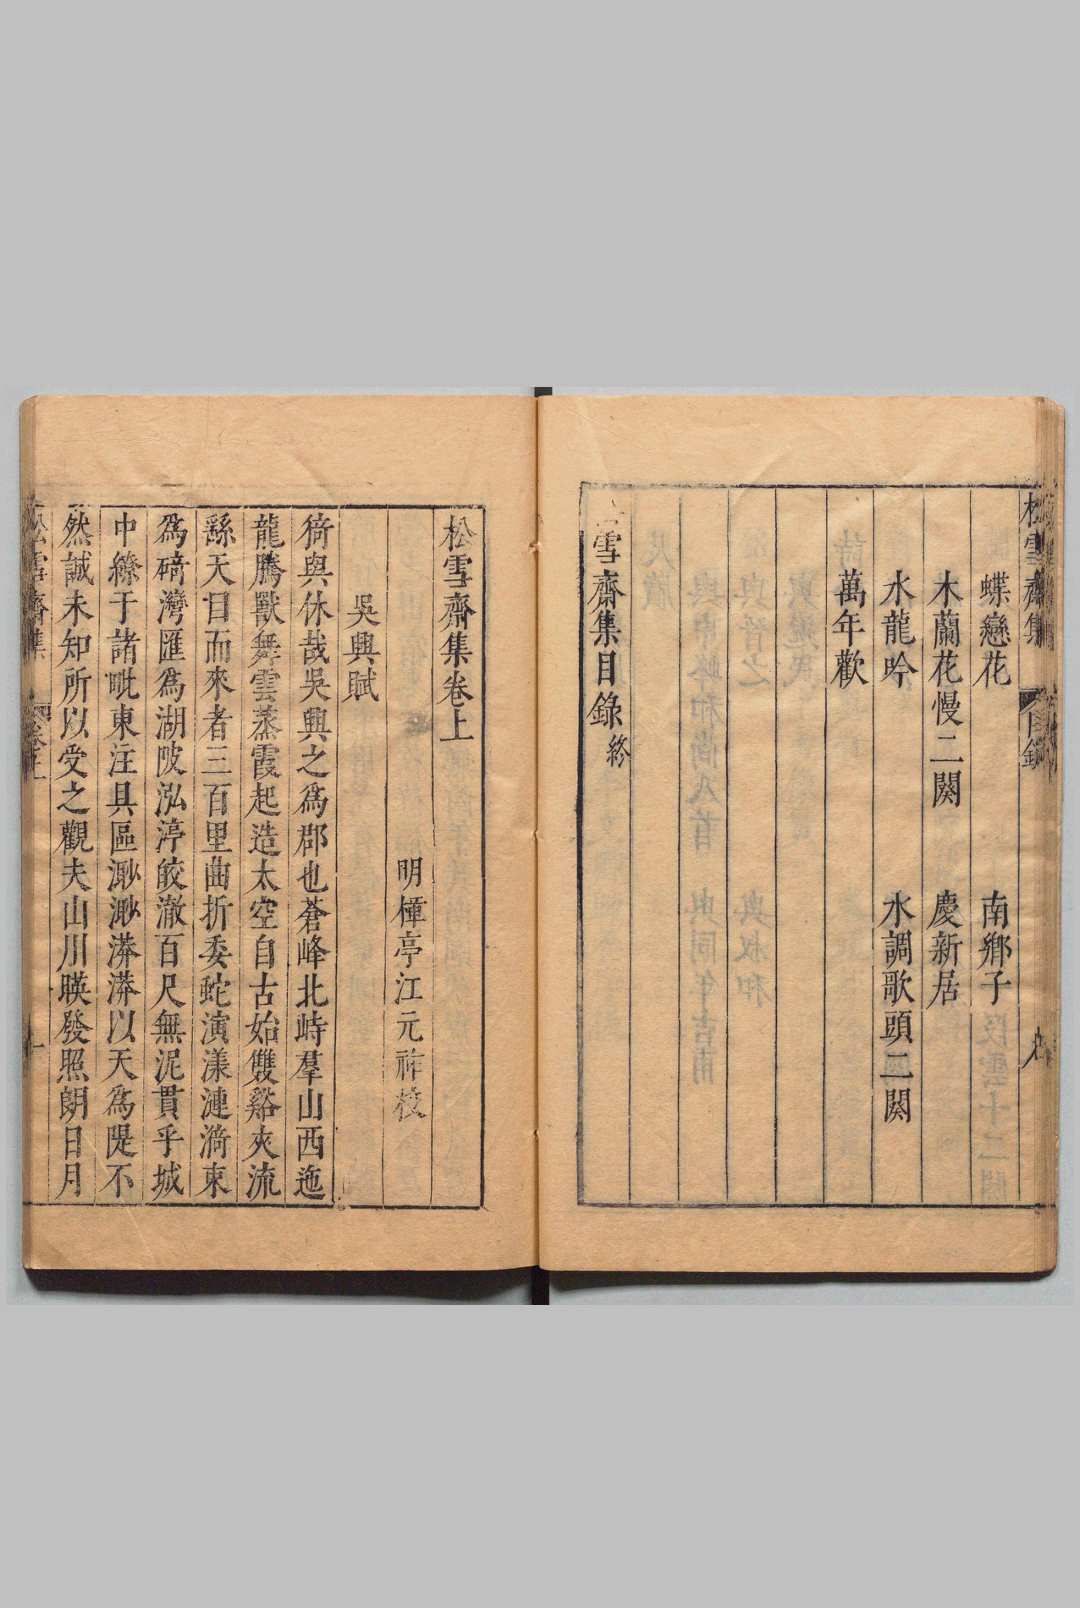 松雪齋集
目錄
九
蝶戀花 南鄉子
木蘭花慢二闋 慶新居
水龍吟 水調歌頭二闋
萬年歡
雪齋集目錄終
松雪齋集卷上
明樟亭江元祚校
吳興賦
猗與休哉吳興之爲郡也蒼峰北峙羣山西迤
龍騰獸舞雲蒸霞起造太空自古始雙谿夾流
繇天目而來者三百里曲折委蛇演漾漣漪東
爲碕灣匯爲湖陂泓渟皎澈百尺無泥貫乎城
中繚于諸毗東注具區渺渺漭漭以天爲隄不
然誠未知所以受之觀夫山川映發照朗日月
松雪齋集
卷上
一